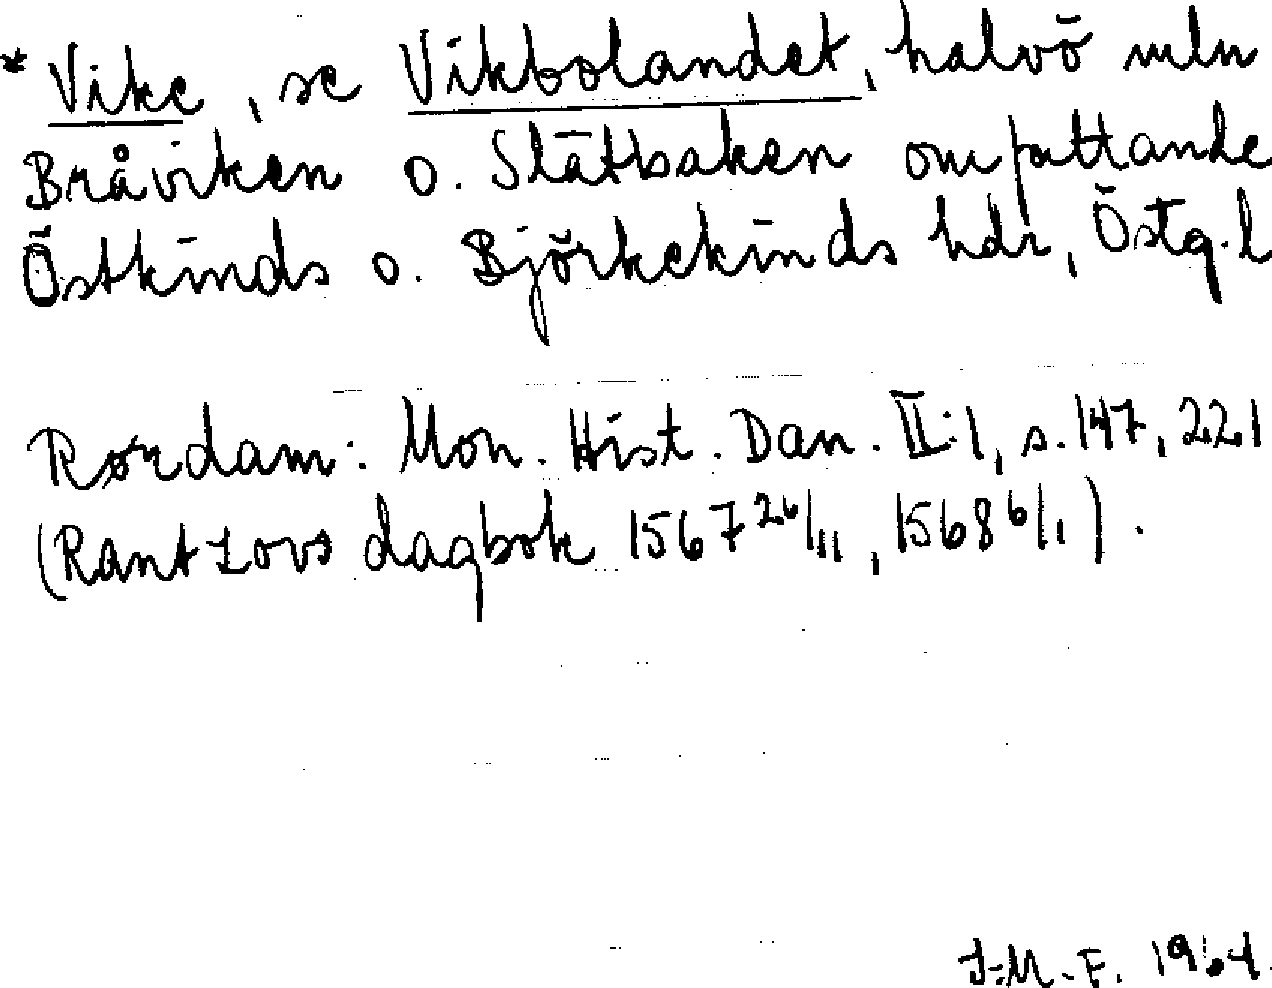 * Vike, se Vikbolandet, halvö mln
Bråviken o. Slätbaken omfattande
Östkinds o. Björkekinds hdr, Östg.l
Rørdam: Mon. Hist. Dan. II:1, s. 147, 221
(Rantzovs dagbok 1567 26/11, 1568 6/1).
J-M. F. 1964.